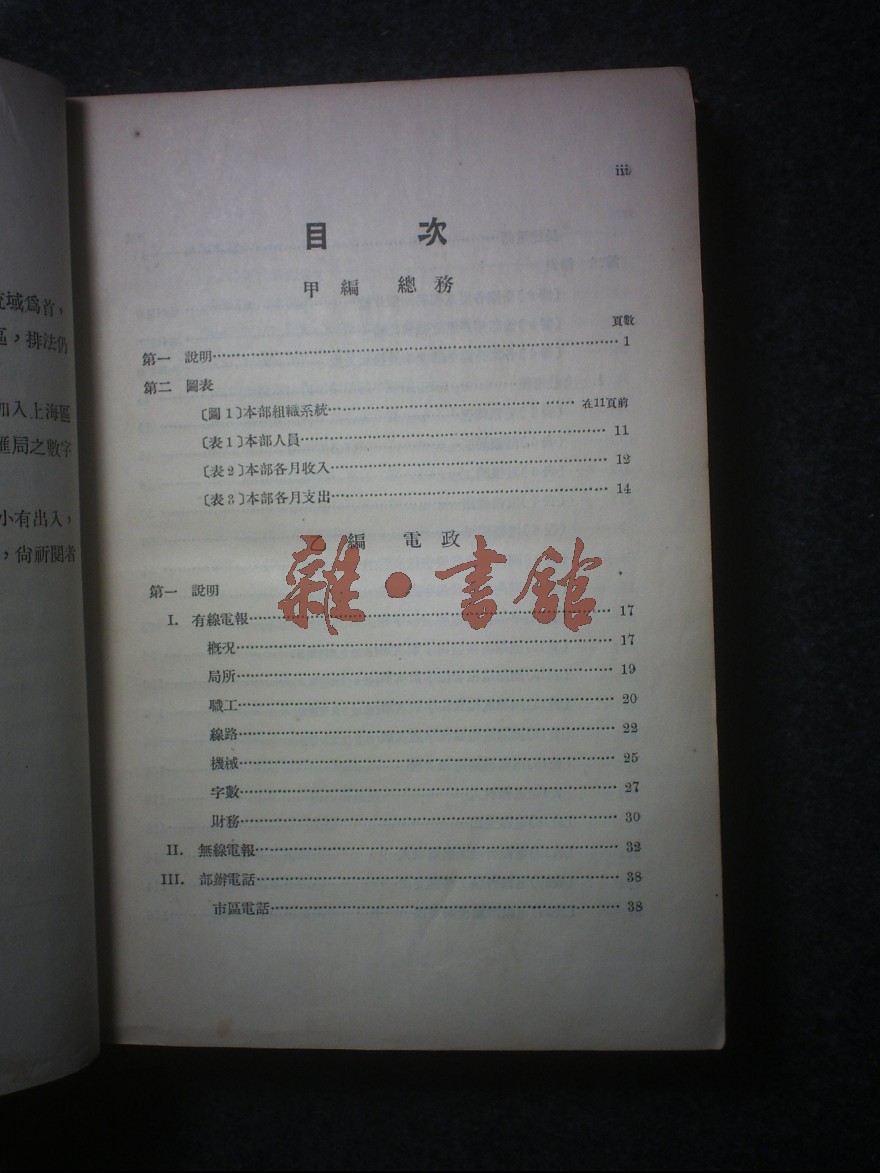 域爲首,
區,排法仍
加入上海區
匯局之數字
小有出入,
,尙祈閱者
iii
目 次
甲編 總務
頁數
第一 說明……1
第二 圖表
〔圖1〕本部組織系統……在11頁前
〔表1〕本部人員……11
〔表2〕本部各月收入……12
〔表3〕本部各月支出……14
乙編 電政
雜·書館
第一 說明
I. 有線電報……17
概况……17
局所……19
職工……20
線路……22
機械……25
字數……27
財務……30
II. 無線電報……32
III. 部辦電話……38
市區電話……38